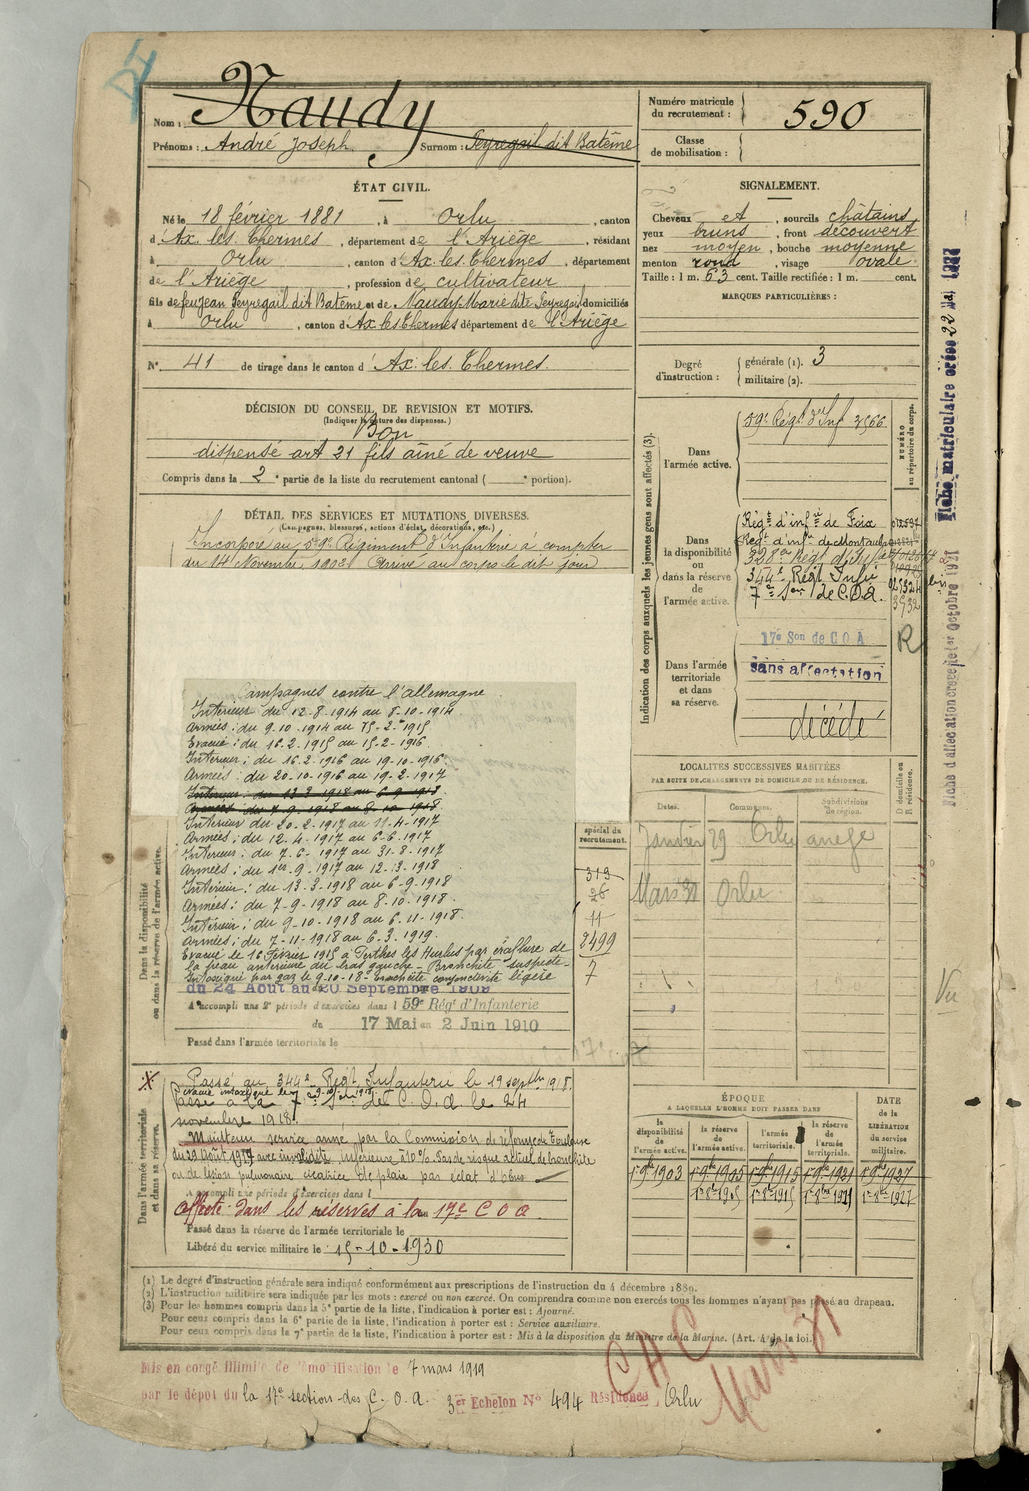 Nom : Naudy
Prénoms : André Joseph Surnom : Peyregail dit Batême
Numéro matricule du recrutement : 590
Classe de mobilisation :
ÉTAT CIVIL.
Né le 18 février 1881, à Orlu, canton
d'Ax les Thermes, département de l'Ariège, résidant
à Orlu, canton d'Ax les Thermes, département
de l'Ariège, profession de cultivateur
fils de feu Jean Peyregail dit Batême et de Naudy Marie dite Peyregail domiciliés
à Orlu, canton d'Ax les Thermes département de l'Ariège
N° 41 de tirage dans le canton d'Ax. les. Thermes.
SIGNALEMENT.
Cheveux et, sourcils châtains
yeux bruns, front découvert
nez moyen, bouche moyenne
menton rond, visage ovale.
Taille : 1 m. 63 cent. Taille rectifiée : 1 m. cent.
MARQUES PARTICULIÈRES :
Degré d'instruction : générale (1). 3
militaire (2).
DÉCISION DU CONSEIL DE REVISION ET MOTIFS.
(Indiquer la nature des dispenses.)
Bon
dispensé art 21 fils aîné de veuve
Compris dans la 2e partie de la liste du recrutement cantonal ( e portion).
DÉTAIL DES SERVICES ET MUTATIONS DIVERSES.
(Campagnes, blessures, actions d'éclat, décorations, etc.)
Incorporé au 59e Régiment d'Infanterie à compter
du 14 Novembre 1902. Arrivé au corps le dit jour
Campagnes contre l'allemagne
Intérieur du 12-8-1914 au 8-10-1914
Armées : du 9-10-1914 au 15-2-1915
Evacué : du 16-2-1915 au 15-2-1916
Intérieur : du 16-2-1916 au 19-10-1916
Armées : du 20-10-1916 au 19-2-1917
Intérieur : du 13-3-1918 au 6-9-1918
Armées : du 7-9-1918 au 8-10-1918
Intérieur du 20-2-1917 au 11-4-1917
Armées : du 12-4-1917 au 6-6-1917
Intérieur : du 7-6-1917 au 31-8-1917
Armées : du 1er-9-1917 au 12-3-1918
Intérieur : du 13-3-1918 au 6-9-1918
Armées : du 7-9-1918 au 8-10-1918.
Intérieur : du 9-10-1918 au 6-11-1918.
Armées : du 7-11-1918 au 6-3-1919.
Evacué le 16 Février 1915 à Perthes les Hurlus par éraflure de
la peau antérieure du bras gauche - Bronchite suspecte -
Intoxiqué par gaz le 9-10-18 - Trachéite conjonctivite légère
du 24 Août au 20 Septembre 1908
A accompli une 2e période d'exercices dans l 59e Régt d'Infanterie
du 17 Mai au 2 Juin 1910
Passé dans l'armée territoriale le
spécial du recrutement.
313
26
11
2499
7
Dans la disponibilité ou dans la réserve de l'armée active.
Passé au 344e Régt Infanterie le 19 septbre 1918.
Passé à la 7e Son de C.O.A. le 24
novembre 1918.
Maintenu service armé par la Commission de réforme de Toulouse
du 29 Août 1917 avec invalidité inférieure à 10% Pas de risque actuel de bronchite
ou de lésion pulmonaire cicatrice de plaie par éclat d'obus
A accompli une période d'exercices dans l
Affecté dans les réserves à la 17e C O A
Passé dans la réserve de l'armée territoriale le
Libéré du service militaire le 15-10-1930
Dans l'armée territoriale et dans sa réserve.
Indication des corps auxquels les jeunes gens sont affectés (3).
NUMÉRO au répertoire du corps.
Dans l'armée active. 59e Régt d'Inf 3566
Dans la disponibilité ou dans la réserve de l'armée active.
Régt d'infrie de Foix
Régt d'infie de Montauban
328e Régt d'Infie
344e Régt Infie
7e Son de C.O.A.
Dans l'armée territoriale et dans sa réserve.
17e Son de C O A
sans affectation
décédé
R
LOCALITÉS SUCCESSIVES HABITÉES
PAR SUITE DE CHANGEMENTS DE DOMICILE OU DE RÉSIDENCE.
Dates. Communes. Subdivisions de région. D domicile ou R résidence.
Janvier 29 Orlu ariege
Mars 31 Orlu
Vu
ÉPOQUE
A LAQUELLE L'HOMME DOIT PASSER DANS
la disponibilité de l'armée active.
la réserve de l'armée active.
l'armée territoriale.
la réserve de l'armée territoriale.
DATE de la LIBÉRATION du service militaire.
1er 9bre 1903 1er 9bre 1905 1er 9bre 1915 1er 9bre 1921 1er 9bre 1927
1er 8bre 1905 1er 8bre 1915 1er 8bre 1921 1er 8bre 1927
Fiche matriculaire créée 22 Mai 1931
Fiche d'affectation créée le 1er Octobre 1921
(1) Le degré d'instruction générale sera indiqué conformément aux prescriptions de l'instruction du 4 décembre 1889.
(2) L'instruction militaire sera indiquée par les mots : exercé ou non exercé. On comprendra comme non exercés tous les hommes n'ayant pas passé au drapeau.
(3) Pour les hommes compris dans la 5e partie de la liste, l'indication à porter est : Ajourné.
Pour ceux compris dans la 6e partie de la liste, l'indication à porter est : Service auxiliaire.
Pour ceux compris dans la 7e partie de la liste, l'indication à porter est : Mis à la disposition du Ministre de la Marine. (Art. 4 de la loi.)
Mis en congé illimité de démobilisation le 7 mars 1919
par le dépôt du la 17e section des C.O.A. 3er Echelon N° 494 Résidence, Orlu
C A C
Mars 31